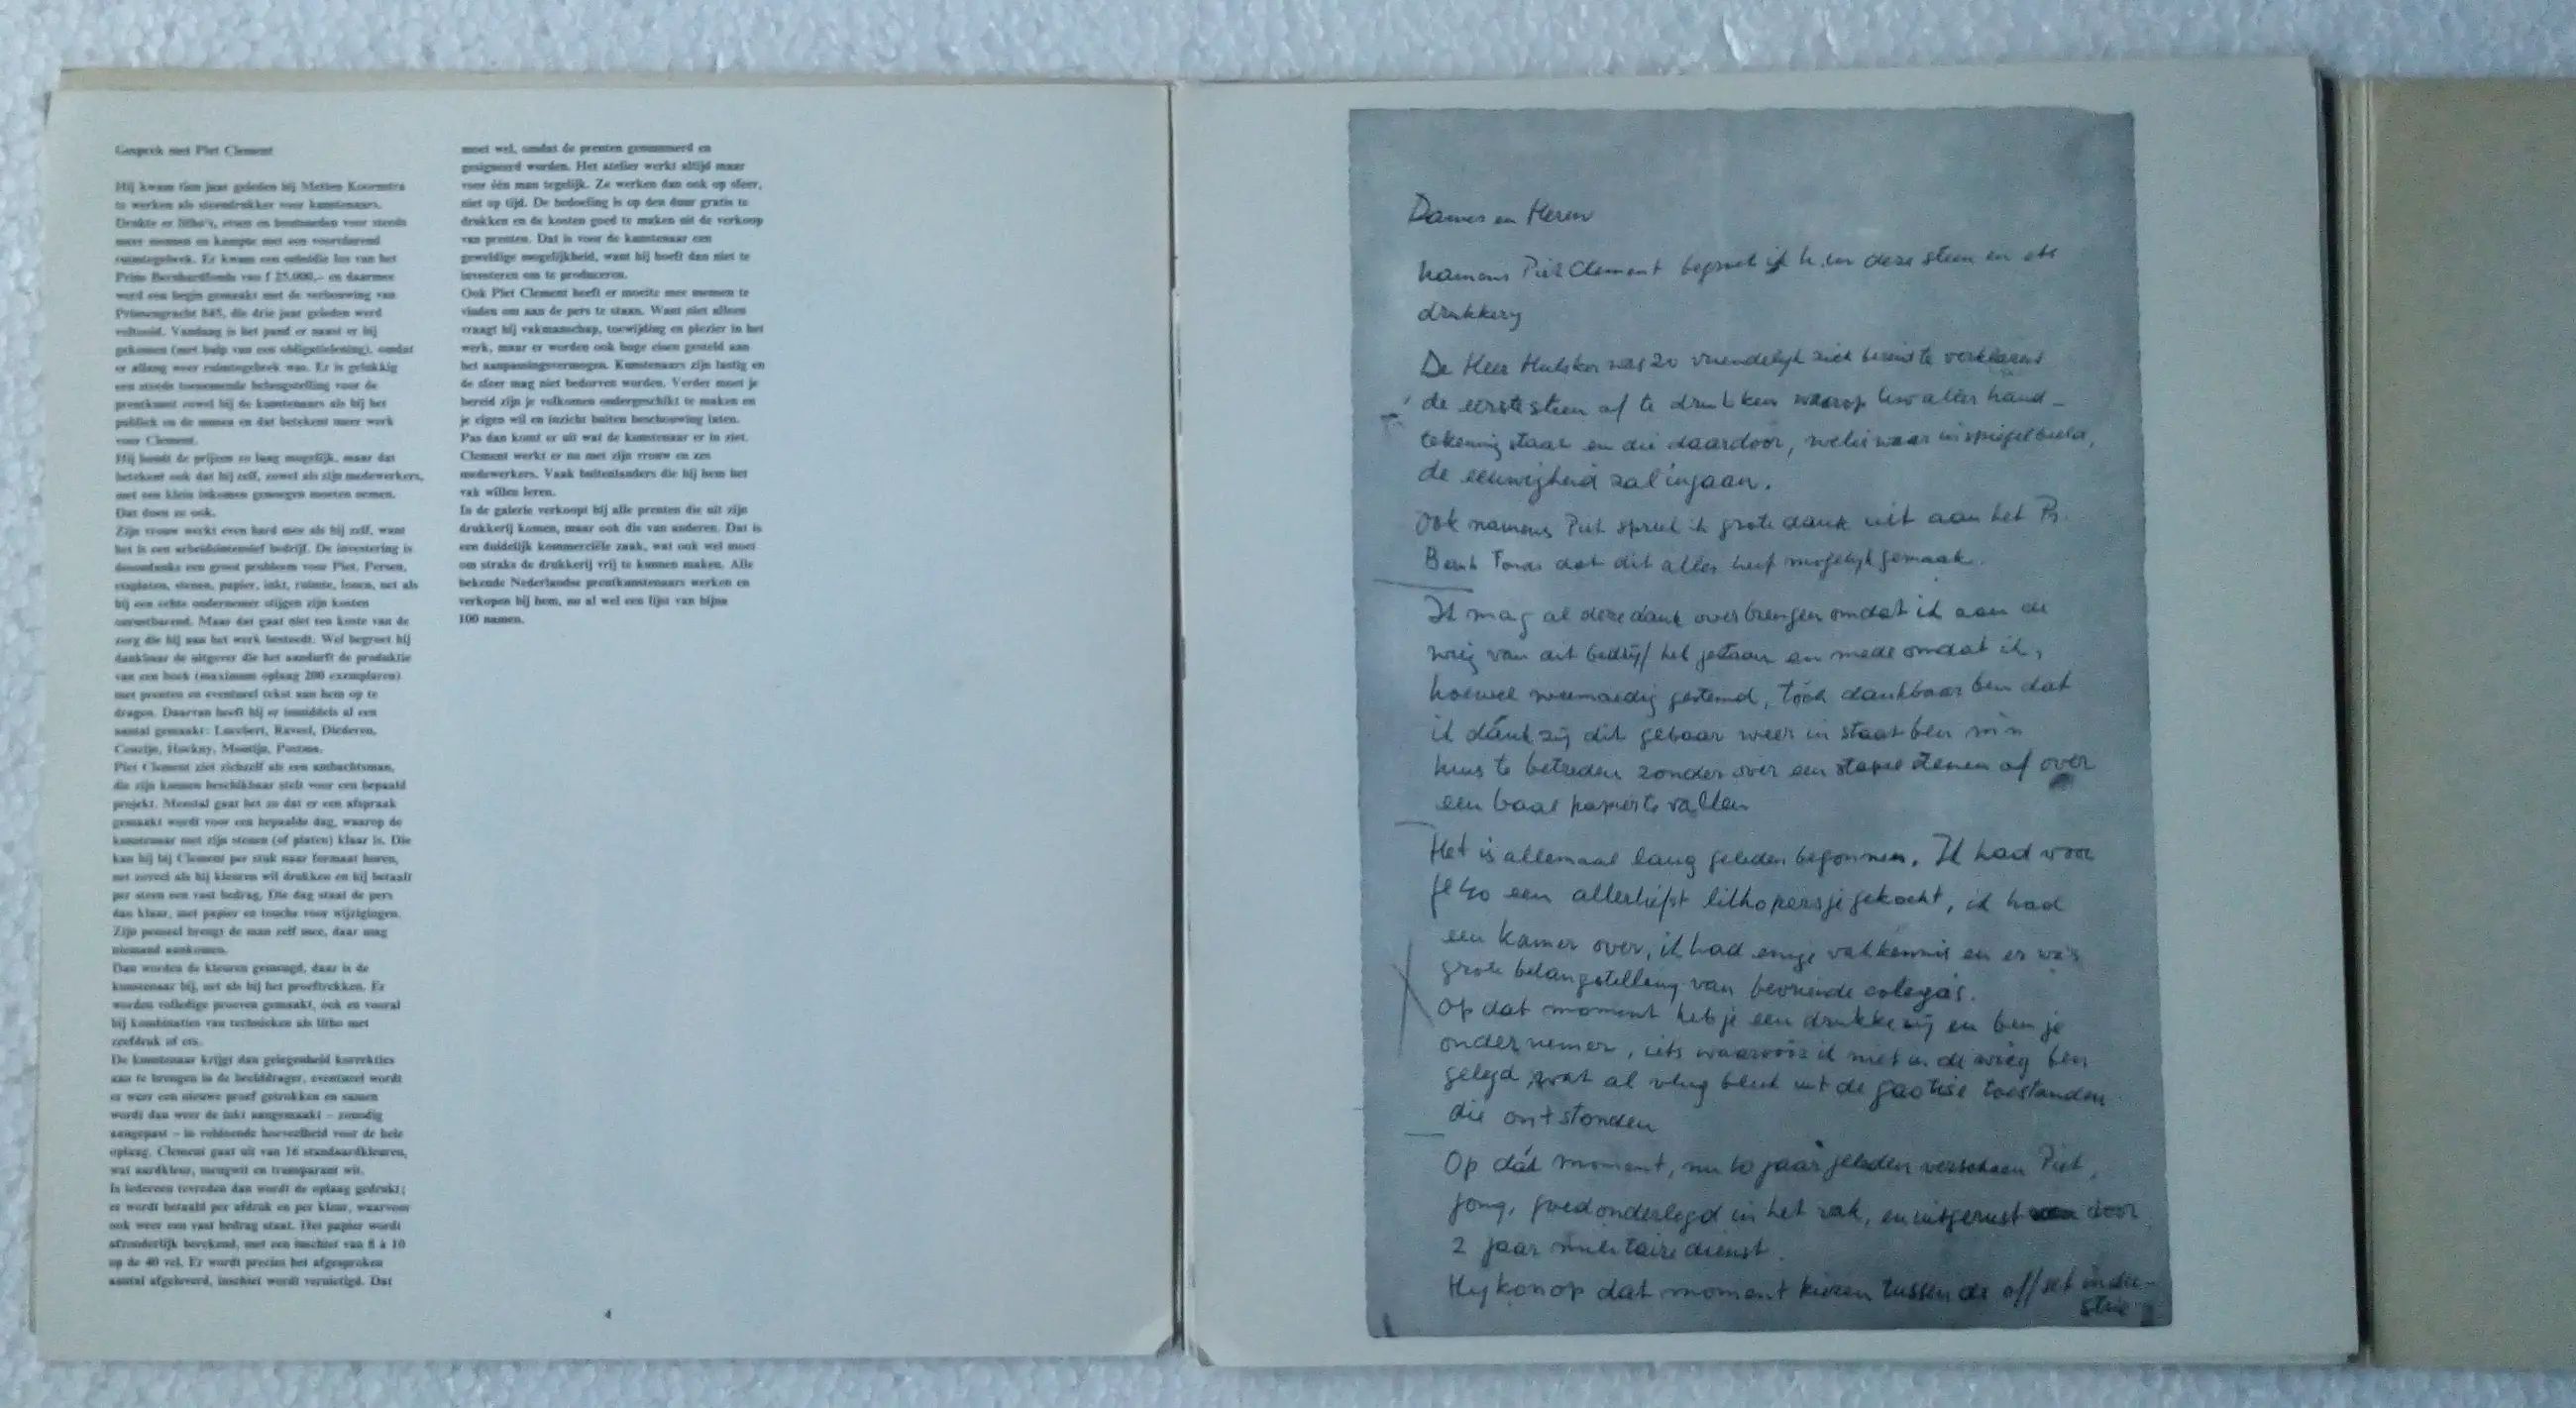 Gesprek met Piet Clement
Hij kwam tien jaar geleden bij Metten Koornstra
te werken als steendrukker voor kunstenaars.
Drukte er litho's, etsen en houtsneden voor steeds
meer mensen en kampte met een voortdurend
ruimtegebrek. Er kwam een subsidie los van het
Prins Bernhardfonds van f 25.000,- en daarmee
werd een begin gemaakt met de verbouwing van
Prinsengracht 845, die drie jaar geleden werd
voltooid. Vandaag is het pand er naast er bij
gekomen (met hulp van een obligatielening), omdat
er allang weer ruimtegebrek was. Er is gelukkig
een steeds toenemende belangstelling voor de
prentkunst zowel bij de kunstenaars als bij het
publiek en de musea en dat betekent meer werk
voor Clement.
Hij houdt de prijzen zo laag mogelijk, maar dat
betekent ook dat hij zelf, zowel als zijn medewerkers,
met een klein inkomen genoegen moeten nemen.
Dat doen ze ook.
Zijn vrouw werkt even hard mee als hij zelf, want
het is een arbeidsintensief bedrijf. De investering is
desondanks een groot probleem voor Piet. Persen,
etsplaten, stenen, papier, inkt, ruimte, lonen, net als
bij een echte ondernemer stijgen zijn kosten
onrustbarend. Maar dat gaat niet ten koste van de
zorg die hij aan het werk besteedt. Wel begroet hij
dankbaar de uitgever die het aandurft de produktie
van een boek (maximum oplaag 200 exemplaren)
met prenten en eventueel tekst aan hem op te
dragen. Daarvan heeft hij er inmiddels al een
aantal gemaakt: Lucebert, Raveel, Diederen,
Couzijn, Hockny, Montijn, Postma.
Piet Clement ziet zichzelf als een ambachtsman,
die zijn kunnen beschikbaar stelt voor een bepaald
projekt. Meestal gaat het zo dat er een afspraak
gemaakt wordt voor een bepaalde dag, waarop de
kunstenaar met zijn stenen (of platen) klaar is. Die
kan hij bij Clement per stuk naar formaat huren,
net zoveel als hij kleuren wil drukken en hij betaalt
per steen een vast bedrag. Die dag staat de pers
dan klaar, met papier en touche voor wijzigingen.
Zijn penseel brengt de man zelf mee, daar mag
niemand aankomen.
Dan worden de kleuren gemengd, daar is de
kunstenaar bij, net als bij het proeftrekken. Er
worden volledige proeven gemaakt, ook en vooral
bij kombinaties van technieken als litho met
zeefdruk of ets.
De kunstenaar krijgt dan gelegenheid korrekties
aan te brengen in de beelddrager, eventueel wordt
er weer een nieuwe proef getrokken en samen
wordt dan weer de inkt aangemaakt - zonodig
aangepast - in voldoende hoeveelheid voor de hele
oplaag. Clement gaat uit van 16 standaardkleuren,
wat aardkleur, mengwit en transparant wit.
Is iedereen tevreden dan wordt de oplaag gedrukt;
er wordt betaald per afdruk en per kleur, waarvoor
ook weer een vast bedrag staat. Het papier wordt
afzonderlijk berekend, met een inschiet van 8 à 10
op de 40 vel. Er wordt precies het afgesproken
aantal afgeleverd, inschiet wordt vernietigd. Dat
moet wel, omdat de prenten genummerd en
gesigneerd worden. Het atelier werkt altijd maar
voor één man tegelijk. Ze werken dan ook op sfeer,
niet op tijd. De bedoeling is op den duur gratis te
drukken en de kosten goed te maken uit de verkoop
van prenten. Dat is voor de kunstenaar een
geweldige mogelijkheid, want hij hoeft dan niet te
investeren om te produceren.
Ook Piet Clement heeft er moeite mee mensen te
vinden om aan de pers te staan. Want niet alleen
vraagt hij vakmanschap, toewijding en plezier in het
werk, maar er worden ook hoge eisen gesteld aan
het aanpassingsvermogen. Kunstenaars zijn lastig en
de sfeer mag niet bedorven worden. Verder moet je
bereid zijn je volkomen ondergeschikt te maken en
je eigen wil en inzicht buiten beschouwing laten.
Pas dan komt er uit wat de kunstenaar er in ziet.
Clement werkt er nu met zijn vrouw en zes
medewerkers. Vaak buitenlanders die bij hem het
vak willen leren.
In de galerie verkoopt hij alle prenten die uit zijn
drukkerij komen, maar ook die van anderen. Dat is
een duidelijk kommerciële zaak, wat ook wel moet
om straks de drukkerij vrij te kunnen maken. Alle
bekende Nederlandse prentkunstenaars werken en
verkopen bij hem, nu al wel een lijst van bijna
100 namen.
4
Dames en Heren
namens Piet Clement begroet ik u in deze steen en ets
drukkery
De Heer Hulsker was zo vriendelyk zich bereid te verklaren
de eerste steen af te drukken waarop uw aller hand-
tekening staat en die daardoor, weliswaar in spiegelbeeld,
de eeuwigheid zal ingaan.
Ook namens Piet spreek ik grote dank uit aan het Pr.
Bernh Fonds dat dit alles heeft mogelyk gemaakt.
Ik mag al deze dank overbrengen omdat ik aan de
wieg van dit bedryf heb gestaan en mede omdat ik,
hoewel weemoedig gestemd, tóch dankbaar ben dat
ik dánk zy dit gebaar weer in staat ben myn
huis te betreden zonder over een stapel stenen of over
een baal papier te vallen
Het is allemaal lang geleden begonnen. Ik had voor
f 240 een allerliefst lithopersje gekocht, ik had
een kamer over, ik had enige vakkennis en er was
grote belangstelling van bevriende colega's.
Op dat moment heb je een drukkery en ben je
ondernemer, iets waarvoor ik niet in de wieg ben
gelegd, wat al vlug bleek uit de gaotise toestanden
die ontstonden
Op dát moment, nu 10 jaar geleden verscheen Piet,
jong, goed onderlegd in het vak, en uitgerust door
2 jaar militaire dienst.
Hy kon op dat moment kiezen tussen de offset indu-
strie